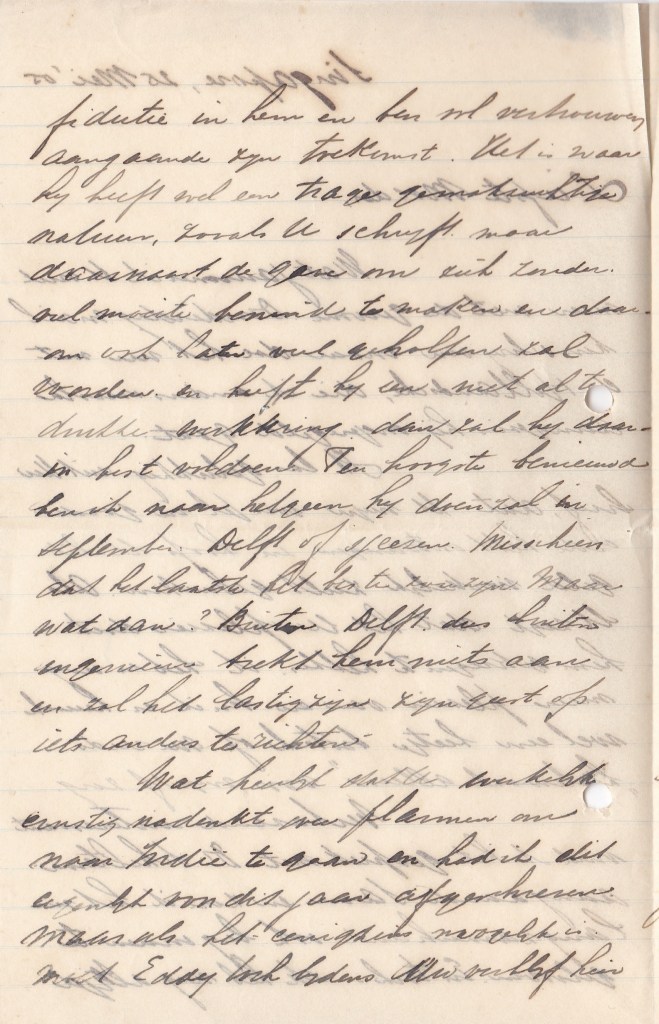 fidutie in hem en ben vol vertrouwen
aangaande zijn toekomst. Het is waar
hij heeft wel een trage gemakzuchtige
natuur, zooals U schrijft, maar
daarnaast de gave om zich zonder
veel moeite bemind te maken en daar-
om ook later veel geholpen zal
worden. en heeft hij een niet al te
drukke werkkring dan zal hij daar-
in best voldoen. Ten hoogste benieuwd
ben ik naar hetgeen hij doen zal in
September. Delft of sjeezen. Misschien
dat het laatste het beste zou zijn. Maar
wat dan? Buiten Delft, dus buiten
ingenieur trekt hem niets aan
en zal het lastig zijn zijn geest op
iets anders te richten.
Wat heerlijk dat U werkelijk
ernstig nadenkt over plannen om
naar Indië te gaan en had ik dit
eigenlijk van dit jaar afgeschreven.
Maar als het eenigzins mogelijk is.
moet Eddy toch tijdens Uw verblijf hier